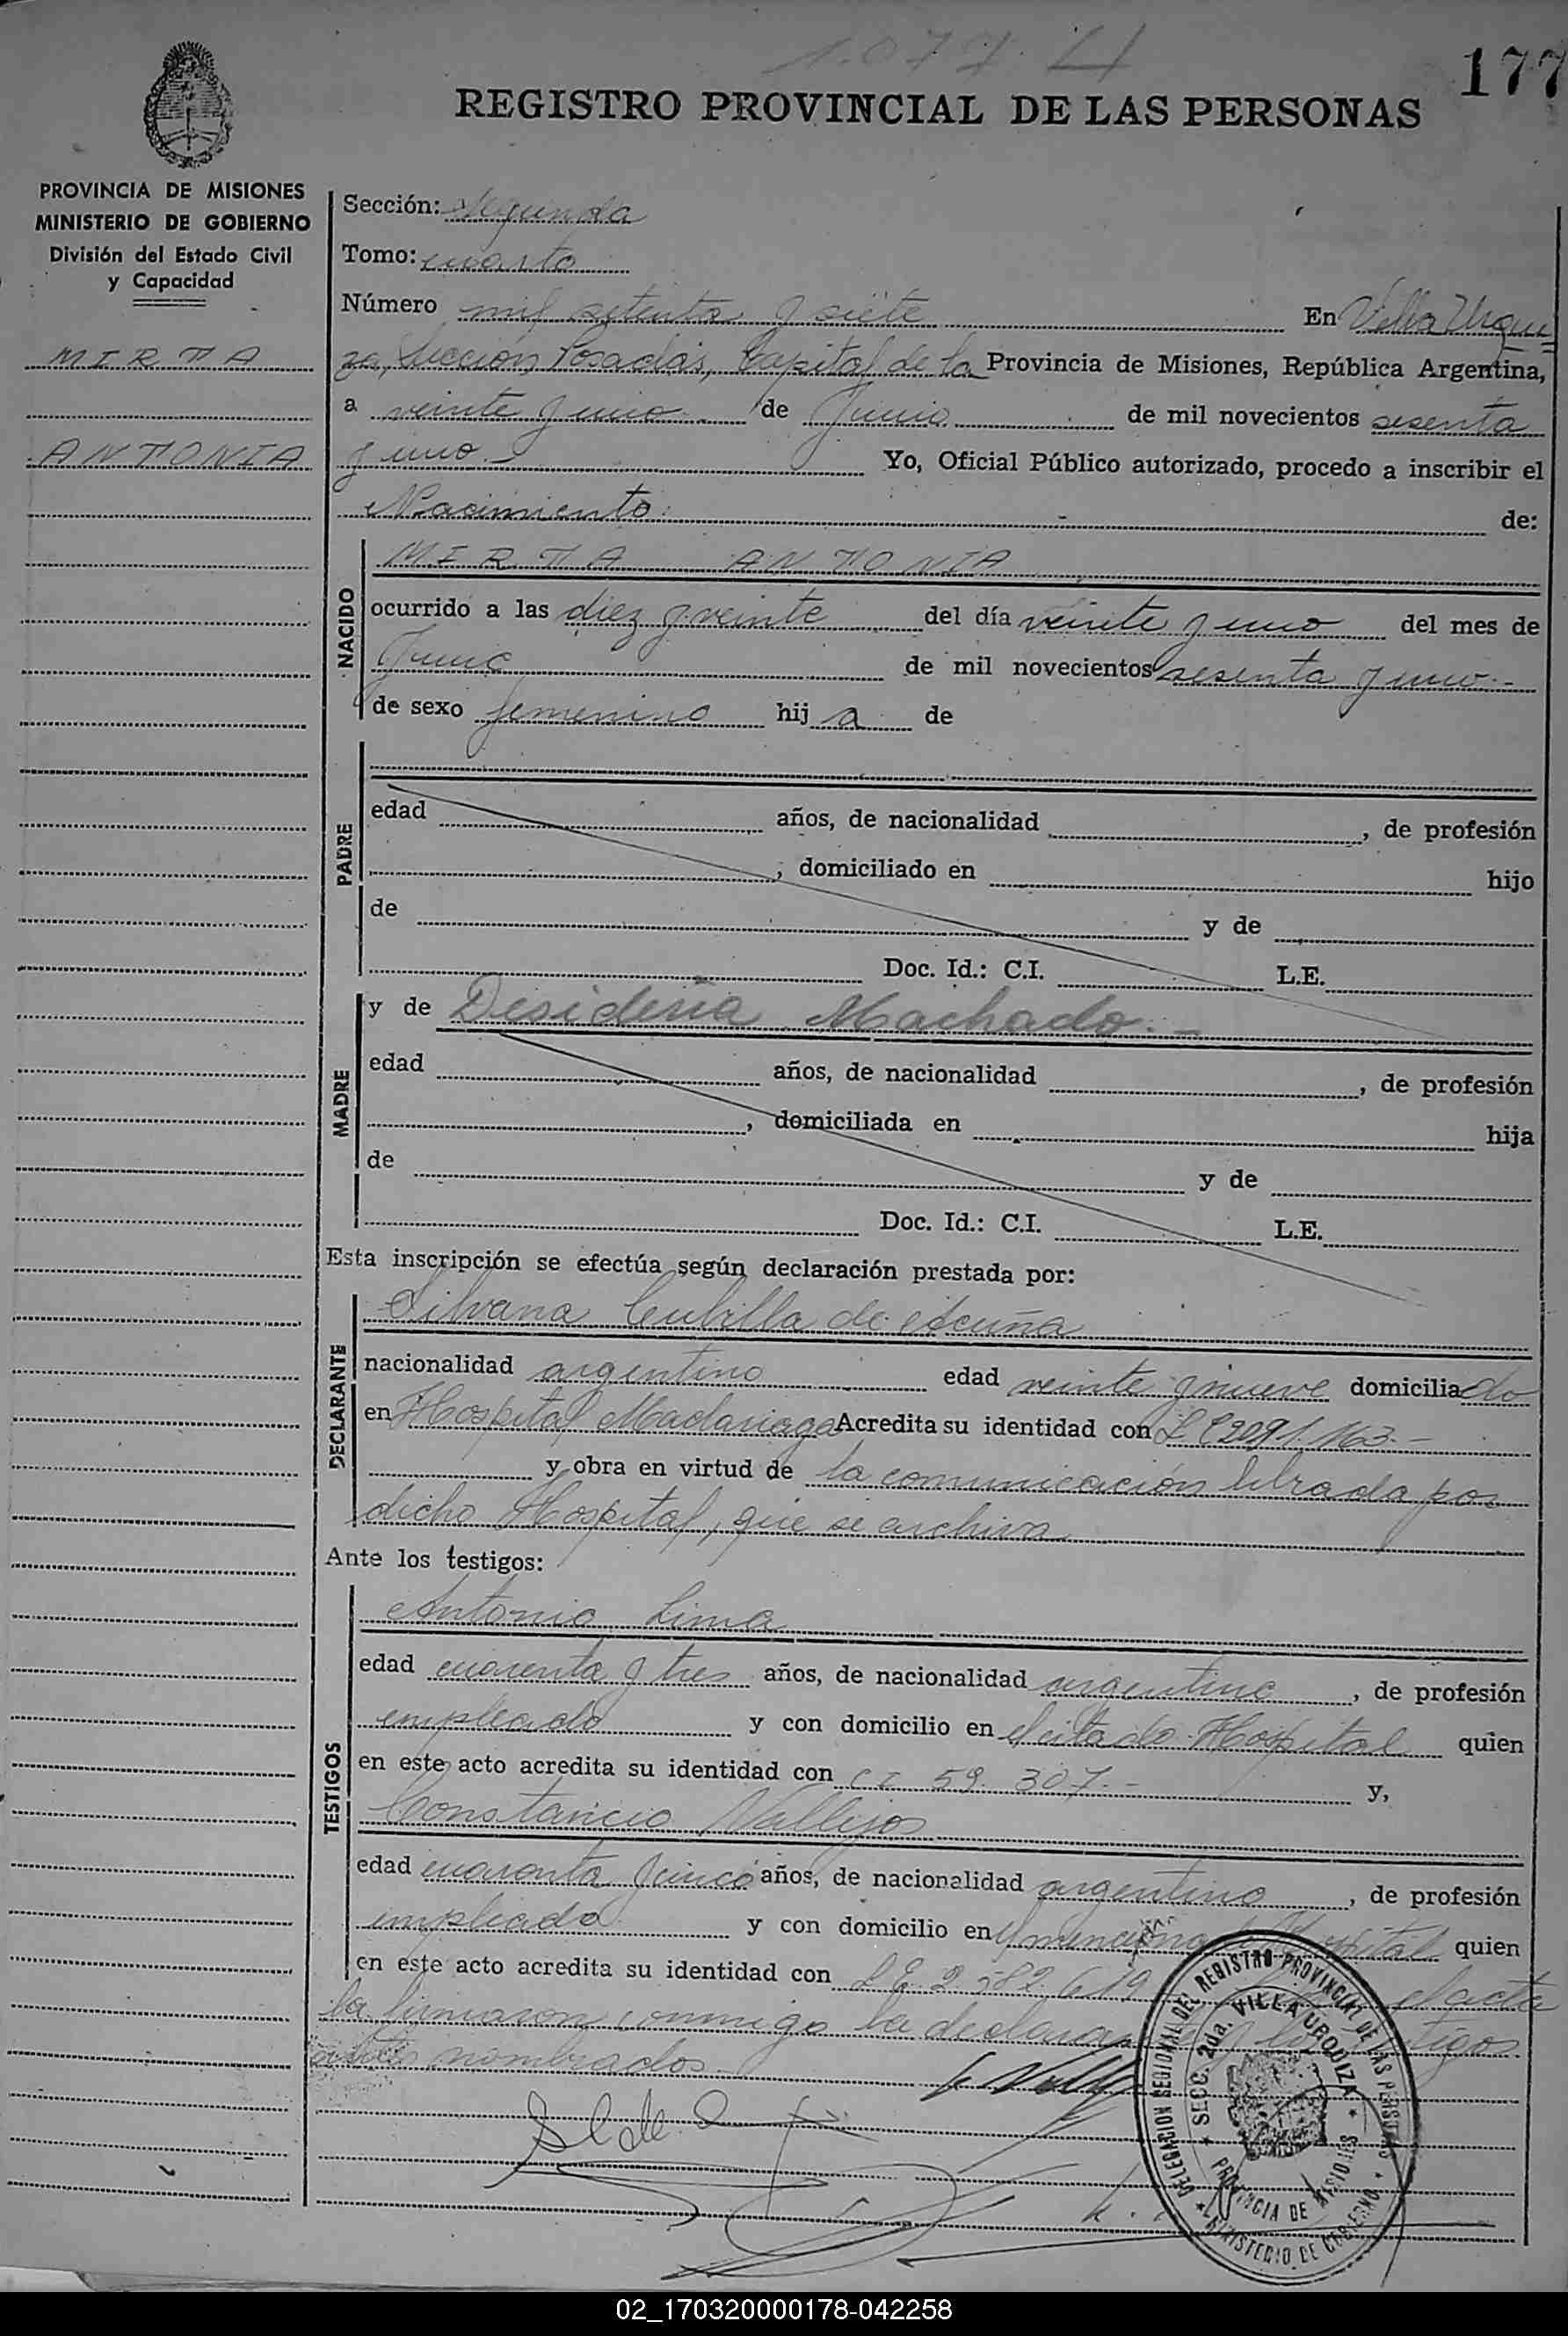 1.077 4
177
REGISTRO PROVINCIAL DE LAS PERSONAS
PROVINCIA DE MISIONES
MINISTERIO DE GOBIERNO
División del Estado Civil
y Capacidad
MIRTA
ANTONIA
Sección: Segunda
Tomo: cuarto
Número mil setenta y siete En Villa Urqui
za, Sección Posadas, Capital de la Provincia de Misiones, República Argentina,
a veinte y uno de Junio de mil novecientos sesenta
y uno.- Yo, Oficial Público autorizado, procedo a inscribir el
Nacimiento de:
NACIDO
MIRTA ANTONIA
ocurrido a las diez y veinte del día veinte y uno del mes de
Junio de mil novecientos sesenta y uno.-
de sexo femenino hij a de
PADRE
edad años, de nacionalidad , de profesión
, domiciliado en hijo
de y de
Doc. Id.: C.I. L.E.
MADRE
y de Desideria Machado.-
edad años, de nacionalidad , de profesión
, domiciliada en hija
de y de
Doc. Id.: C.I. L.E.
Esta inscripción se efectúa según declaración prestada por:
DECLARANTE
Silvana Cubilla de Acuña
nacionalidad argentino edad veinte y nueve domiciliado
en Hospital Madariaga Acredita su identidad con L C 2091.163.-
y obra en virtud de la comunicación librada por
dicho Hospital, que se archiva
Ante los testigos:
TESTIGOS
Antonio Lima
edad cuarenta y tres años, de nacionalidad argentino , de profesión
empleado y con domicilio en el citado Hospital quien
en este acto acredita su identidad con C I 59.307.- y,
Constancio Vallejos
edad cuarenta y cinco años, de nacionalidad argentino , de profesión
empleado y con domicilio en el mencionado Hospital quien
en este acto acredita su identidad con L E 2.582.619 el acta
la firmaron conmigo la declarante y los testigos
ante nombrados.-
DELEGACION REGIONAL DEL REGISTRO PROVINCIAL DE LAS PERSONAS
SECC. 2da. VILLA URQUIZA
PROVINCIA DE MISIONES
MINISTERIO DE GOBIERNO
02_170320000178-042258